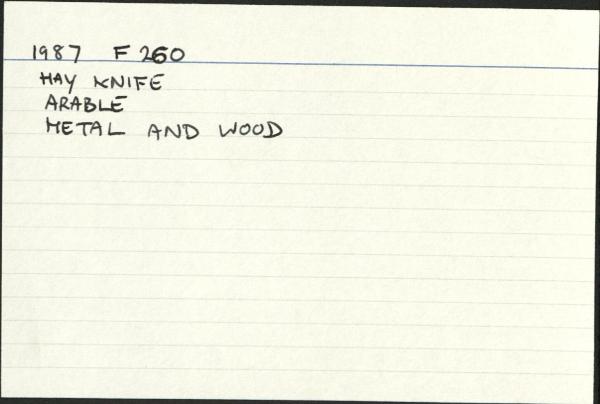 1987 F 260
HAY KNIFE
ARABLE
METAL AND WOOD